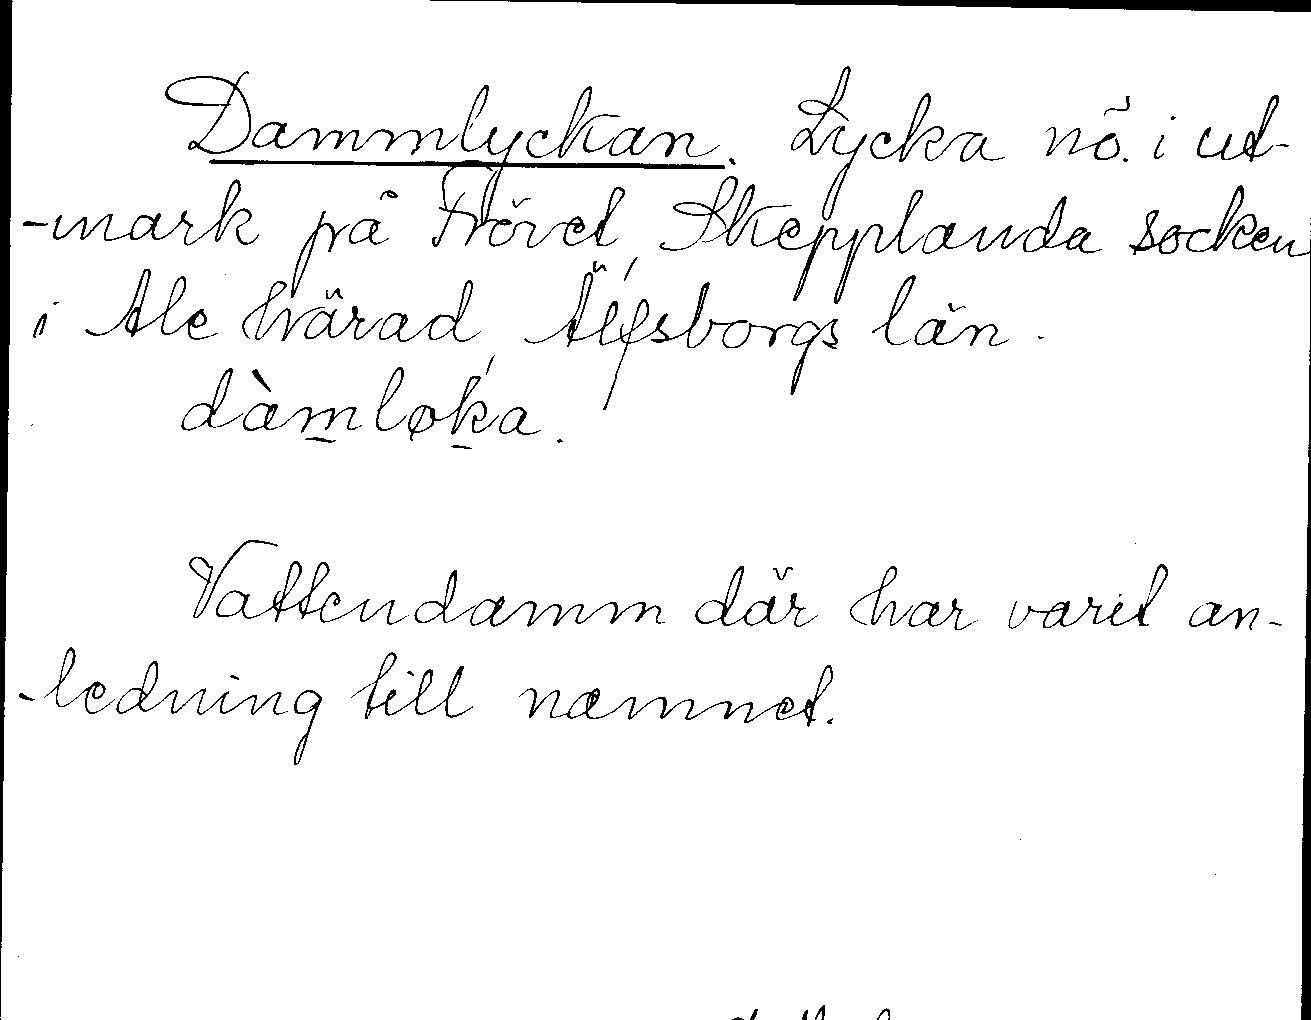 Dammlyckan. Lycka nö. i ut-
-mark på Frövet, Skepplanda socken
i Ale härad, Älfsborgs län.
dàm̲løk̲a.
Vattendamm där har varit an-
-ledning till namnet.